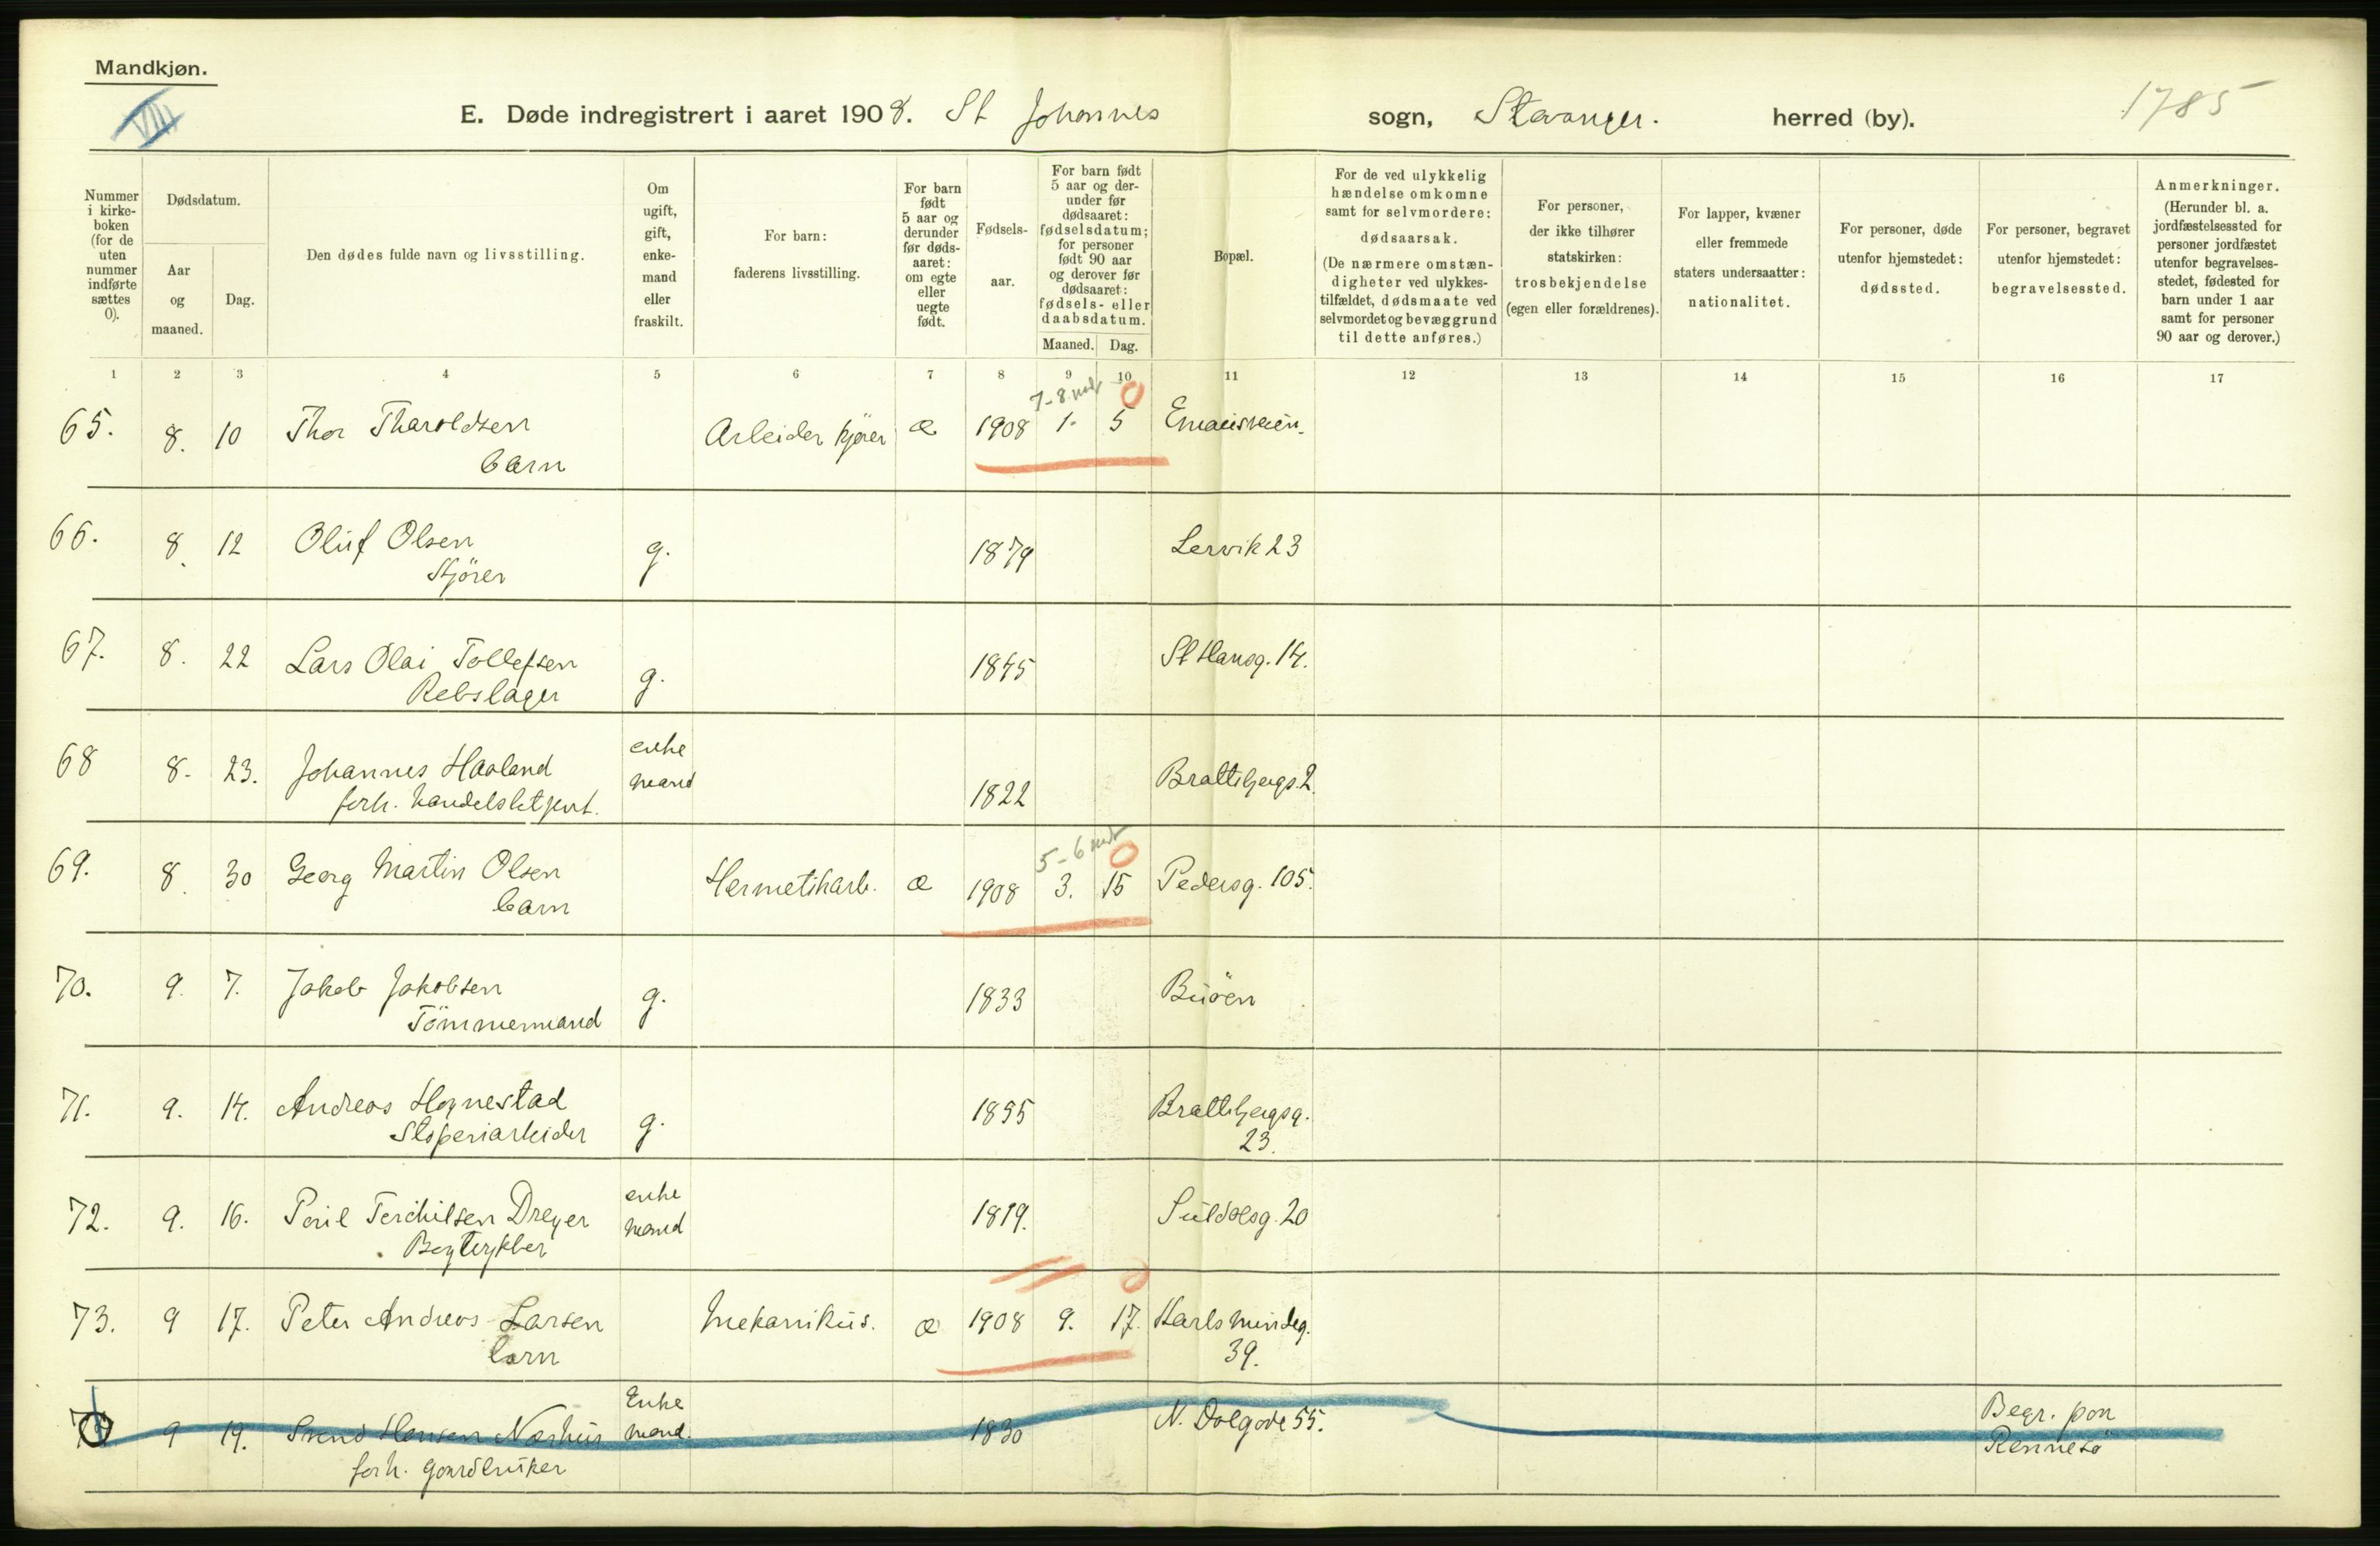 Mandkjøn.
VIII
E. Døde indregistrert i aaret 1908. St Johannes sogn, Stavanger. herred (by).
1785
Nummer i kirkeboken (for de uten nummer indførte sættes 0).
Dødsdatum.
Aar og maaned.
Dag.
Den dødes fulde navn og livsstilling.
Om ugift, gift, enkemand eller fraskilt.
For barn: faderens livsstilling.
For barn født 5 aar og derunder før dødsaaret: om egte eller uegte født.
Fødselsaar.
For barn født 5 aar og derunder før dødsaaret: fødselsdatum; for personer født 90 aar og derover før dødsaaret: fødsels- eller daabsdatum.
Maaned. Dag.
Bopæl.
For de ved ulykkelig hændelse omkomne samt for selvmordere: dødsaarsak. (De nærmere omstændigheter ved ulykkestilfældet, dødsmaate ved selvmordet og bevæggrund til dette anføres.)
For personer, der ikke tilhører statskirken: trosbekjendelse (egen eller forældrenes).
For lapper, kvæner eller fremmede staters undersaatter: nationalitet.
For personer, døde utenfor hjemstedet: dødssted.
For personer, begravet utenfor hjemstedet: begravelsessted.
Anmerkninger. (Herunder bl. a. jordfæstelsessted for personer jordfæstet utenfor begravelsesstedet, fødested for barn under 1 aar samt for personer 90 aar og derover.)
1 2 3 4 5 6 7 8 9 10 11 12 13 14 15 16 17
7-8 mdr 0
65. 8. 10 Thor Tharoldsen Arbeider kjører æ 1908 1. 5 Emausveien.
barn
66. 8. 12 Oluf Olsen g. 1879 Lervik 23
Kjører
67. 8. 22 Lars Olai Tollefsen g. 1845 St Hansg. 14.
Rebslager
68 8. 23. Johannes Haaland enke mand 1822 Brattebergs. 2.
forh. handelsbetjent.
5-6 mdr 0
69. 8. 30 Georg Martin Olsen Hermetikarb. æ 1908 3. 15 Pedersg. 105.
barn
70. 9. 7. Jakob Jakobsen g. 1833 Buöen
Tömmermand
71. 9. 14. Andreas Hognestad g. 1855 Brattebergsg. 23.
Støperiarbeider
72. 9. 16. Poul Terchilsen Dreyer enke mand 1819. Suldalsg. 20
Bogtrykker
0
73. 9 17. Peter Andreas Larsen Mekanikus. æ 1908 9. 17. Karlsmindeg. 39.
barn
0 9 19. Svend Hansen Nærhus Enke mand. 1830 N. Dalgade 55. Begr. paa Rennesö
forh. gaardbruker